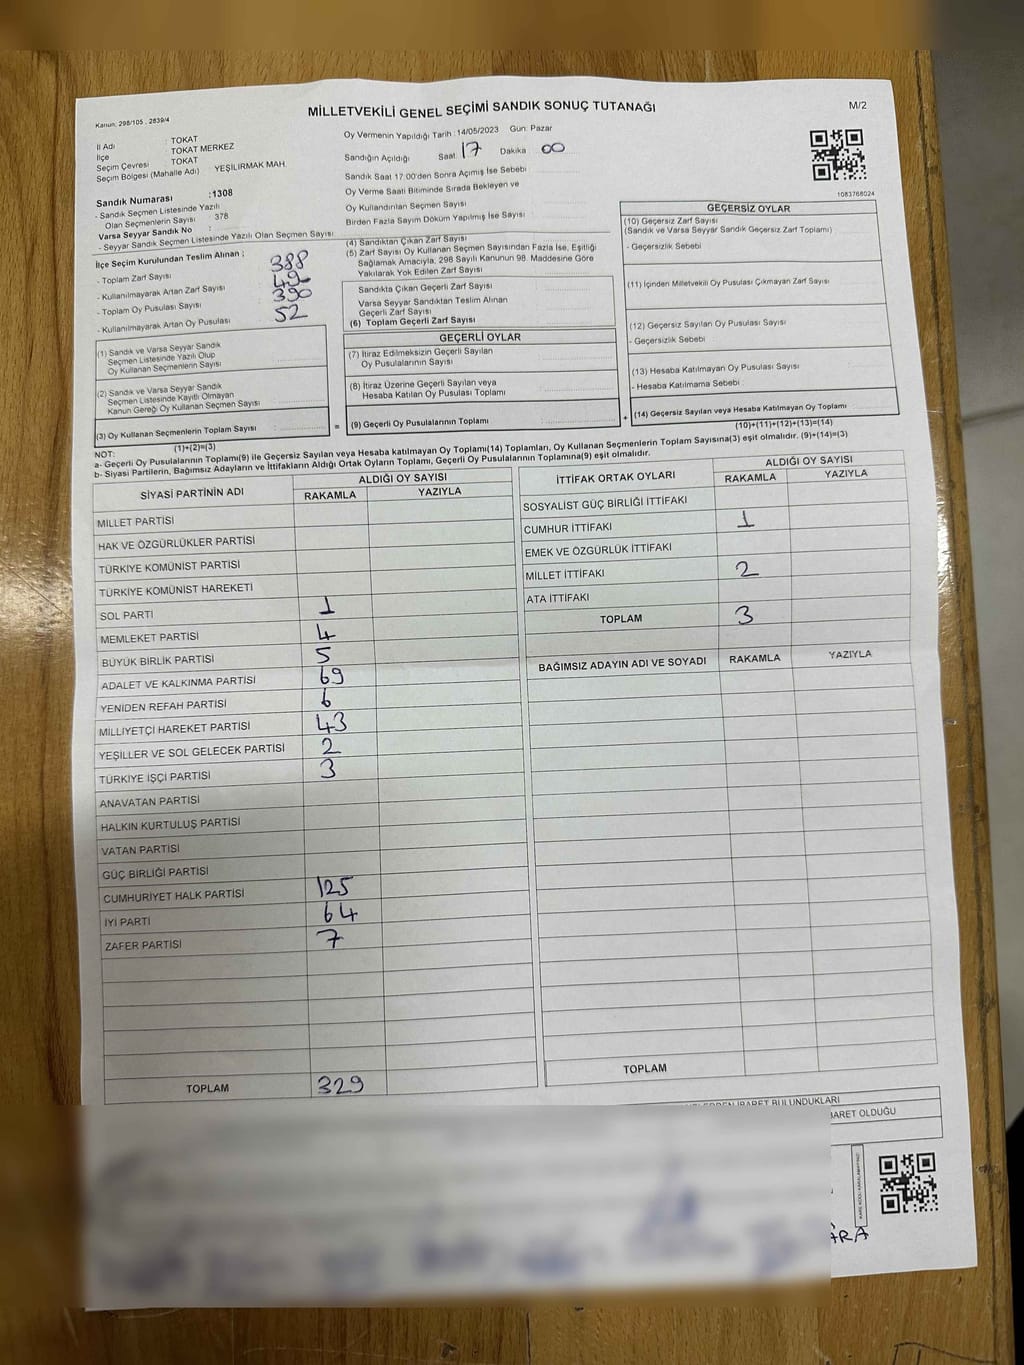 MİLLETVEKİLİ GENEL SEÇİMİ SANDIK SONUÇ TUTANAĞI
M/2
Kanun: 298/105 , 2839/4
İl Adı : TOKAT
İlçe TOKAT MERKEZ
Seçim Çevresi : TOKAT
Seçim Bölgesi (Mahalle Adı) YEŞİLIRMAK MAH.
Sandık Numarası :1308
- Sandık Seçmen Listesinde Yazılı
Olan Seçmenlerin Sayısı : 378
Varsa Seyyar Sandık No :
- Seyyar Sandık Seçmen Listesinde Yazılı Olan Seçmen Sayısı:
Oy Vermenin Yapıldığı Tarih : 14/05/2023 Gün: Pazar
Sandığın Açıldığı Saat: 17 Dakika 00
Sandık Saat 17:00'den Sonra Açımış İse Sebebi
Oy Verme Saati Bitiminde Sırada Bekleyen ve
Oy Kullandırılan Seçmen Sayısı
Birden Fazla Sayım Döküm Yapılmış İse Sayısı
1083768024
İlçe Seçim Kurulundan Teslim Alınan :
- Toplam Zarf Sayısı 388
- Kullanılmayarak Artan Zarf Sayısı 49
- Toplam Oy Pusulası Sayısı 390
- Kullanılmayarak Artan Oy Pusulası 52
(1) Sandık ve Varsa Seyyar Sandık
Seçmen Listesinde Yazılı Olup
Oy Kullanan Seçmenlerin Sayısı
(2) Sandık ve Varsa Seyyar Sandık
Seçmen Listesinde Kayıtlı Olmayan
Kanun Gereği Oy Kullanan Seçmen Sayısı
(3) Oy Kullanan Seçmenlerin Toplam Sayısı :
(1)+(2)=(3)
(4) Sandıktan Çıkan Zarf Sayısı
(5) Zarf Sayısı Oy Kullanan Seçmen Sayısından Fazla İse, Eşitliği
Sağlamak Amacıyla, 298 Sayılı Kanunun 98. Maddesine Göre
Yakılarak Yok Edilen Zarf Sayısı
Sandıkta Çıkan Geçerli Zarf Sayısı
Varsa Seyyar Sandıktan Teslim Alınan
Geçerli Zarf Sayısı
(6) Toplam Geçerli Zarf Sayısı
GEÇERLİ OYLAR
(7) İtiraz Edilmeksizin Geçerli Sayılan
Oy Pusulalarının Sayısı
(8) İtiraz Üzerine Geçerli Sayılan veya
Hesaba Katılan Oy Pusulası Toplamı
= (9) Geçerli Oy Pusulalarının Toplamı
GEÇERSİZ OYLAR
(10) Geçersiz Zarf Sayısı
(Sandık ve Varsa Seyyar Sandık Geçersiz Zarf Toplamı)
- Geçersizlik Sebebi
(11) İçinden Milletvekili Oy Pusulası Çıkmayan Zarf Sayısı
(12) Geçersiz Sayılan Oy Pusulası Sayısı
- Geçersizlik Sebebi
(13) Hesaba Katılmayan Oy Pusulası Sayısı
- Hesaba Katılmama Sebebi
+ (14) Geçersiz Sayılan veya Hesaba Katılmayan Oy Toplamı
(10)+(11)+(12)+(13)=(14)
NOT:
a- Geçerli Oy Pusulalarının Toplamı(9) ile Geçersiz Sayılan veya Hesaba katılmayan Oy Toplamı(14) Toplamları, Oy Kullanan Seçmenlerin Toplam Sayısına(3) eşit olmalıdır. (9)+(14)=(3)
b- Siyasi Partilerin, Bağımsız Adayların ve İttifakların Aldığı Ortak Oyların Toplamı, Geçerli Oy Pusulalarının Toplamına(9) eşit olmalıdır.
SİYASİ PARTİNİN ADI ALDIĞI OY SAYISI
RAKAMLA YAZIYLA
MİLLET PARTİSİ
HAK VE ÖZGÜRLÜKLER PARTİSİ
TÜRKİYE KOMÜNİST PARTİSİ
TÜRKİYE KOMÜNİST HAREKETİ
SOL PARTİ 1
MEMLEKET PARTİSİ 4
BÜYÜK BİRLİK PARTİSİ 5
ADALET VE KALKINMA PARTİSİ 69
YENİDEN REFAH PARTİSİ 6
MİLLİYETÇİ HAREKET PARTİSİ 43
YEŞİLLER VE SOL GELECEK PARTİSİ 2
TÜRKİYE İŞÇİ PARTİSİ 3
ANAVATAN PARTİSİ
HALKIN KURTULUŞ PARTİSİ
VATAN PARTİSİ
GÜÇ BİRLİĞİ PARTİSİ
CUMHURİYET HALK PARTİSİ 125
İYİ PARTİ 64
ZAFER PARTİSİ 7
TOPLAM 329
İTTİFAK ORTAK OYLARI ALDIĞI OY SAYISI
RAKAMLA YAZIYLA
SOSYALİST GÜÇ BİRLİĞİ İTTİFAKI
CUMHUR İTTİFAKI 1
EMEK VE ÖZGÜRLÜK İTTİFAKI
MİLLET İTTİFAKI 2
ATA İTTİFAKI
TOPLAM 3
BAĞIMSIZ ADAYIN ADI VE SOYADI RAKAMLA YAZIYLA
TOPLAM
İBARET BULUNDUKLARI
BARET OLDUĞU
ARA